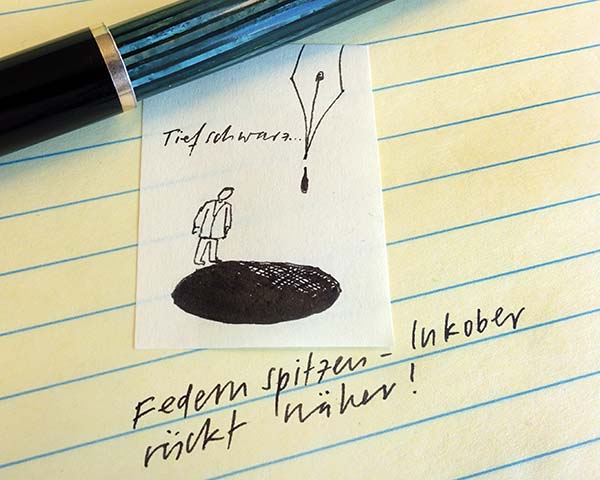 Tiefschwarz...
Federn spitzen - Inkober
rückt näher!